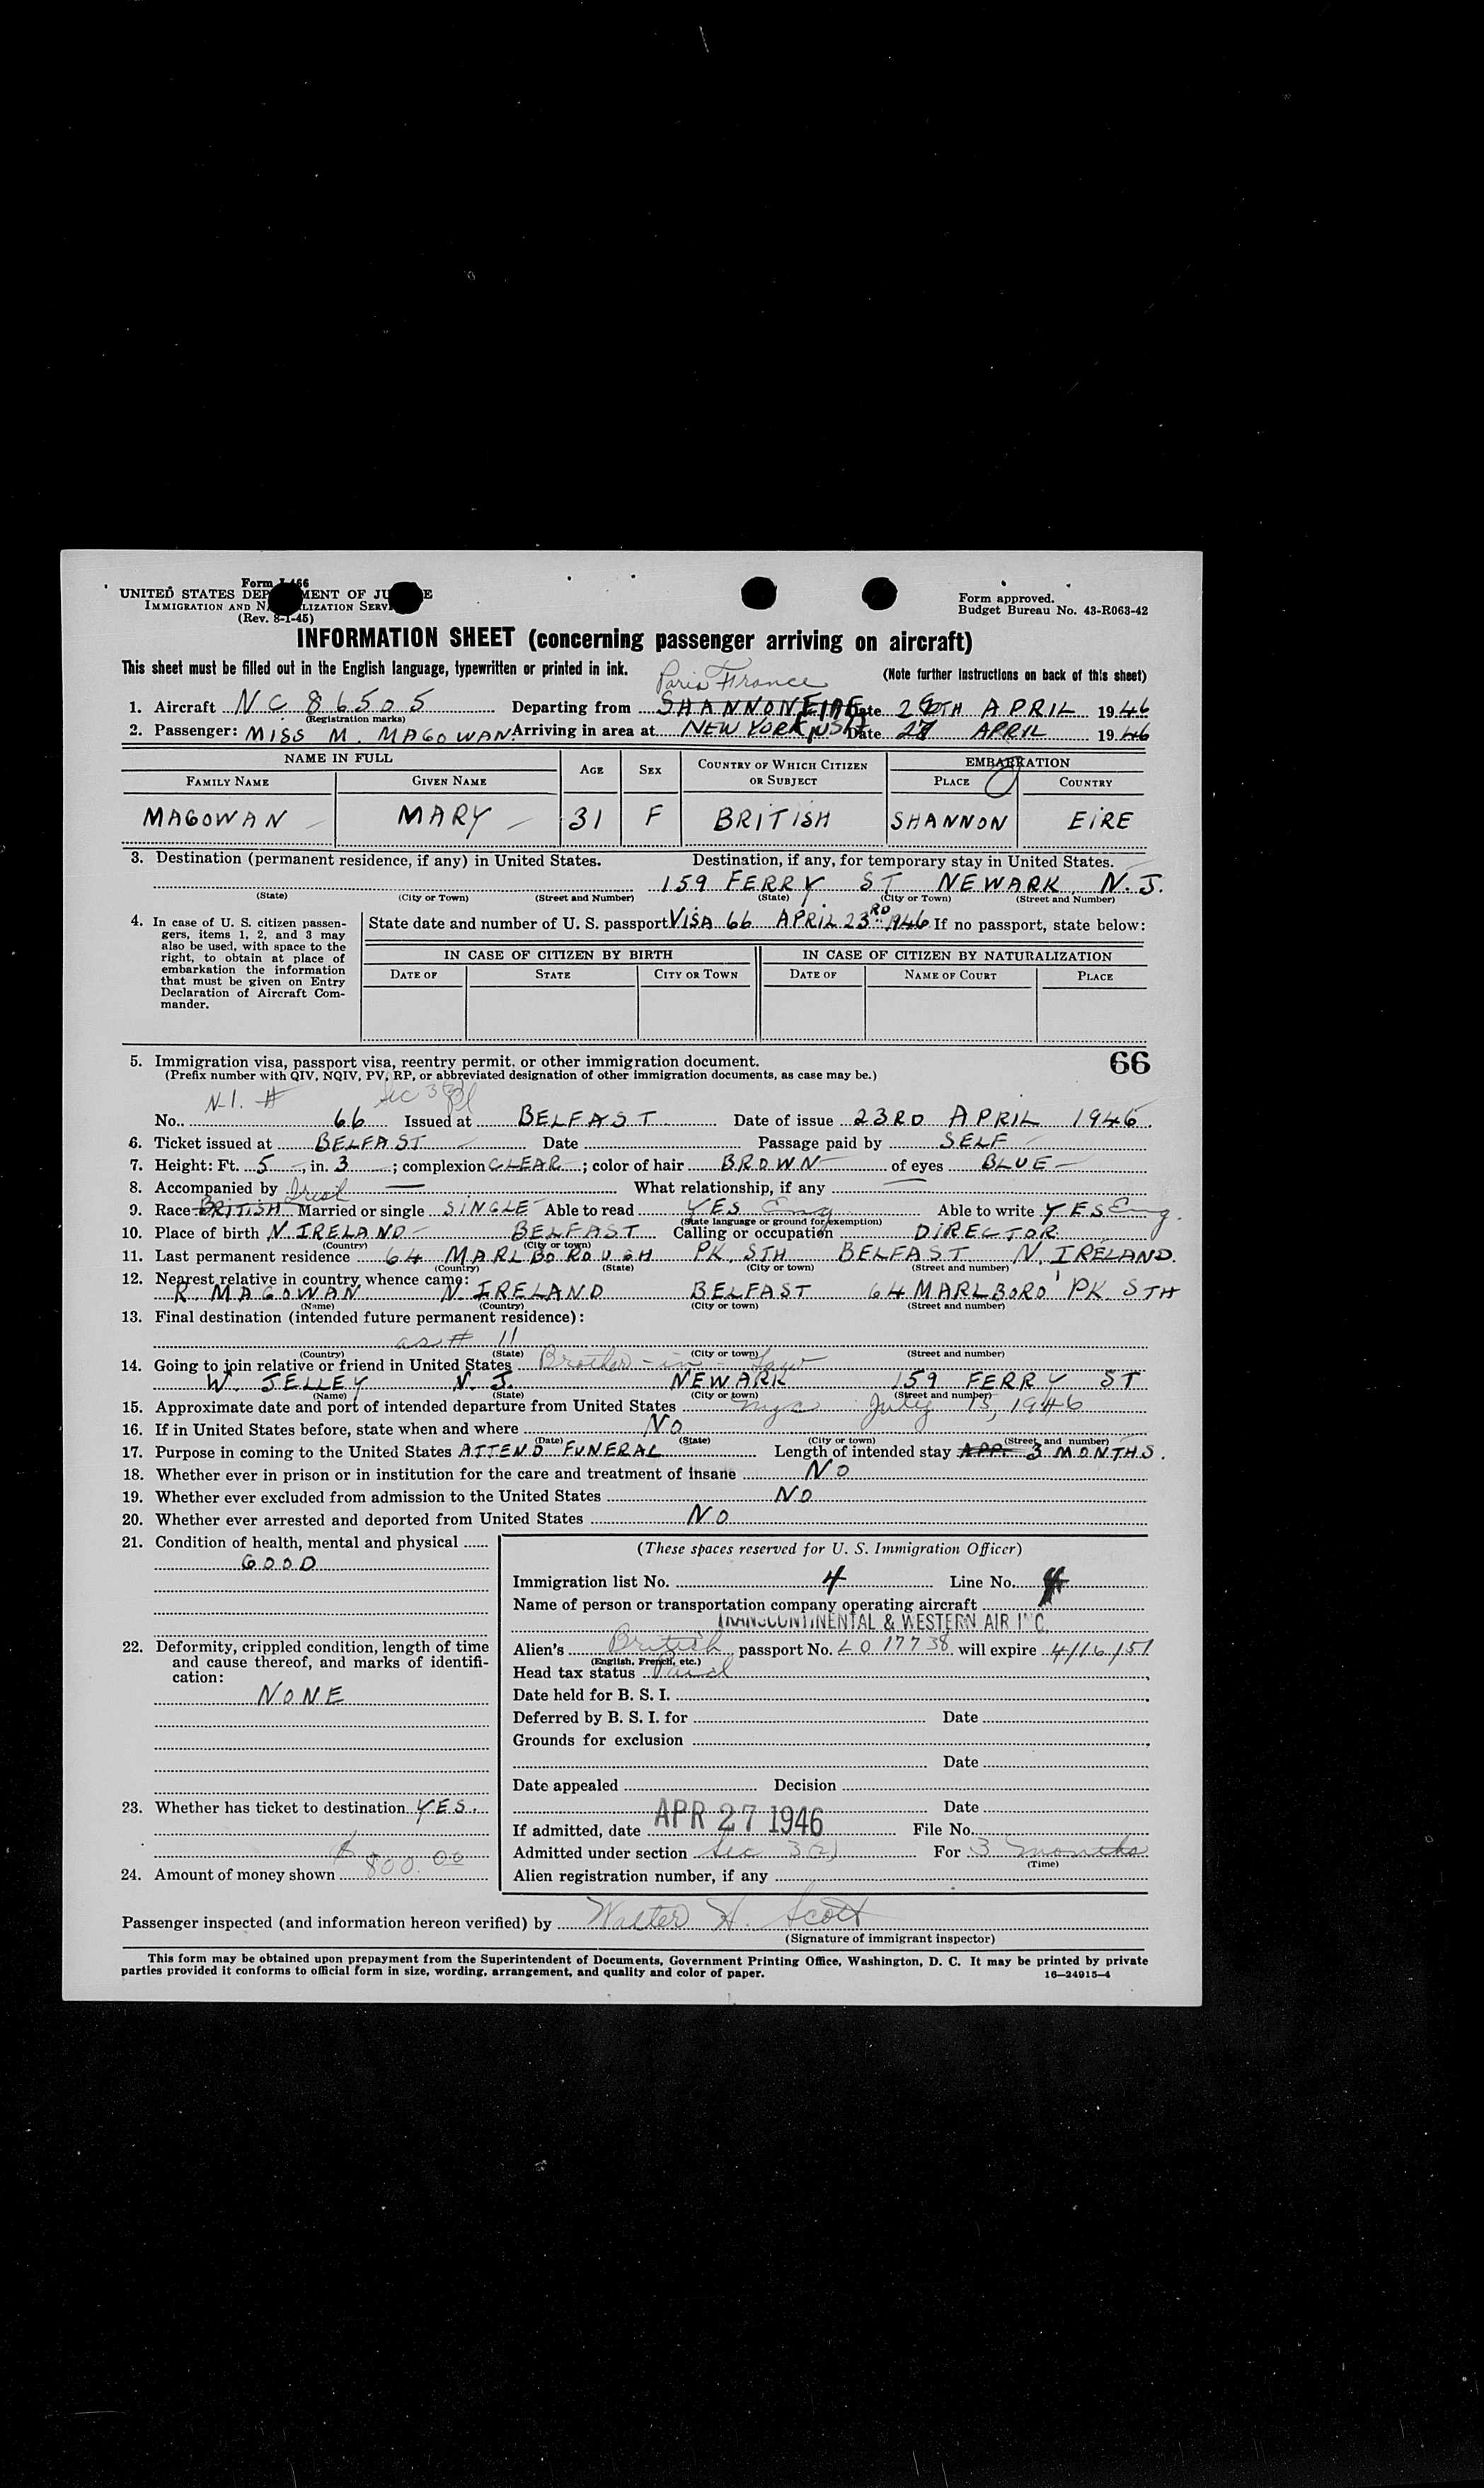 Form I-466
UNITED STATES DEPARTMENT OF JUSTICE
IMMIGRATION AND NATURALIZATION SERVICE
(Rev. 8-1-45)
Form approved.
Budget Bureau No. 43-R063-42
INFORMATION SHEET (concerning passenger arriving on aircraft)
This sheet must be filled out in the English language, typewritten or printed in ink.
(Note further instructions on back of this sheet)
Paris France
1. Aircraft NC 86505 Departing from SHANNON EIRE Date 26TH APRIL 1946
(Registration marks)
2. Passenger: MISS M. MAGOWAN Arriving in area at NEW YORK, USA Date 27 APRIL 1946
NAME IN FULL AGE SEX COUNTRY OF WHICH CITIZEN OR SUBJECT EMBARKATION
FAMILY NAME GIVEN NAME PLACE COUNTRY
MAGOWAN MARY 31 F BRITISH SHANNON EIRE
3. Destination (permanent residence, if any) in United States. Destination, if any, for temporary stay in United States.
159 FERRY ST NEWARK, N.J.
(State) (City or Town) (Street and Number) (State) (City or Town) (Street and Number)
4. In case of U. S. citizen passengers, items 1, 2, and 3 may also be used, with space to the right, to obtain at place of embarkation the information that must be given on Entry Declaration of Aircraft Commander.
State date and number of U. S. passport VISA 66 APRIL 23RD 1946 If no passport, state below:
IN CASE OF CITIZEN BY BIRTH IN CASE OF CITIZEN BY NATURALIZATION
DATE OF STATE CITY OR TOWN DATE OF NAME OF COURT PLACE
5. Immigration visa, passport visa, reentry permit, or other immigration document. 66
(Prefix number with QIV, NQIV, PV, RP, or abbreviated designation of other immigration documents, as case may be.)
N-1. # Sec 3(2)
No. 66 Issued at BELFAST Date of issue 23RD APRIL 1946.
6. Ticket issued at BELFAST Date Passage paid by SELF
7. Height: Ft. 5, in. 3; complexion CLEAR; color of hair BROWN of eyes BLUE
8. Accompanied by — What relationship, if any —
Irish
9. Race BRITISH Married or single SINGLE Able to read YES Eng Able to write YES Eng.
(State language or ground for exemption)
10. Place of birth N. IRELAND BELFAST Calling or occupation DIRECTOR
(Country) (City or town)
11. Last permanent residence 64 MARLBOROUGH PK. STH BELFAST N. IRELAND.
(Country) (State) (City or town) (Street and number)
12. Nearest relative in country whence came:
R. MAGOWAN N. IRELAND BELFAST 64 MARLBORO' PK. STH
(Name) (Country) (City or town) (Street and number)
13. Final destination (intended future permanent residence):
as # 11
(Country) (State) (City or town) (Street and number)
14. Going to join relative or friend in United States Brother-in-Law
W. JELLEY N. J. NEWARK 159 FERRY ST
(Name) (State) (City or town) (Street and number)
15. Approximate date and port of intended departure from United States nyc July 15, 1946
16. If in United States before, state when and where NO
(Date) (State) (City or town) (Street and number)
17. Purpose in coming to the United States ATTEND FUNERAL Length of intended stay APP. 3 MONTHS.
18. Whether ever in prison or in institution for the care and treatment of insane NO
19. Whether ever excluded from admission to the United States NO
20. Whether ever arrested and deported from United States NO
21. Condition of health, mental and physical
GOOD
22. Deformity, crippled condition, length of time and cause thereof, and marks of identification:
NONE
23. Whether has ticket to destination YES.
24. Amount of money shown $800.00
(These spaces reserved for U. S. Immigration Officer)
Immigration list No. 4 Line No. 4
Name of person or transportation company operating aircraft
TRANSCONTINENTAL & WESTERN AIR INC.
Alien's British passport No. LO 17738 will expire 4/16/51
(English, French, etc.)
Head tax status Paid
Date held for B. S. I.
Deferred by B. S. I. for Date
Grounds for exclusion
Date
Date appealed Decision
Date
If admitted, date APR 27 1946 File No.
Admitted under section Sec 3(2) For 3 months
(Time)
Alien registration number, if any
Passenger inspected (and information hereon verified) by Walter H. Scott
(Signature of immigrant inspector)
This form may be obtained upon prepayment from the Superintendent of Documents, Government Printing Office, Washington, D. C. It may be printed by private
parties provided it conforms to official form in size, wording, arrangement, and quality and color of paper.
16—24915-4